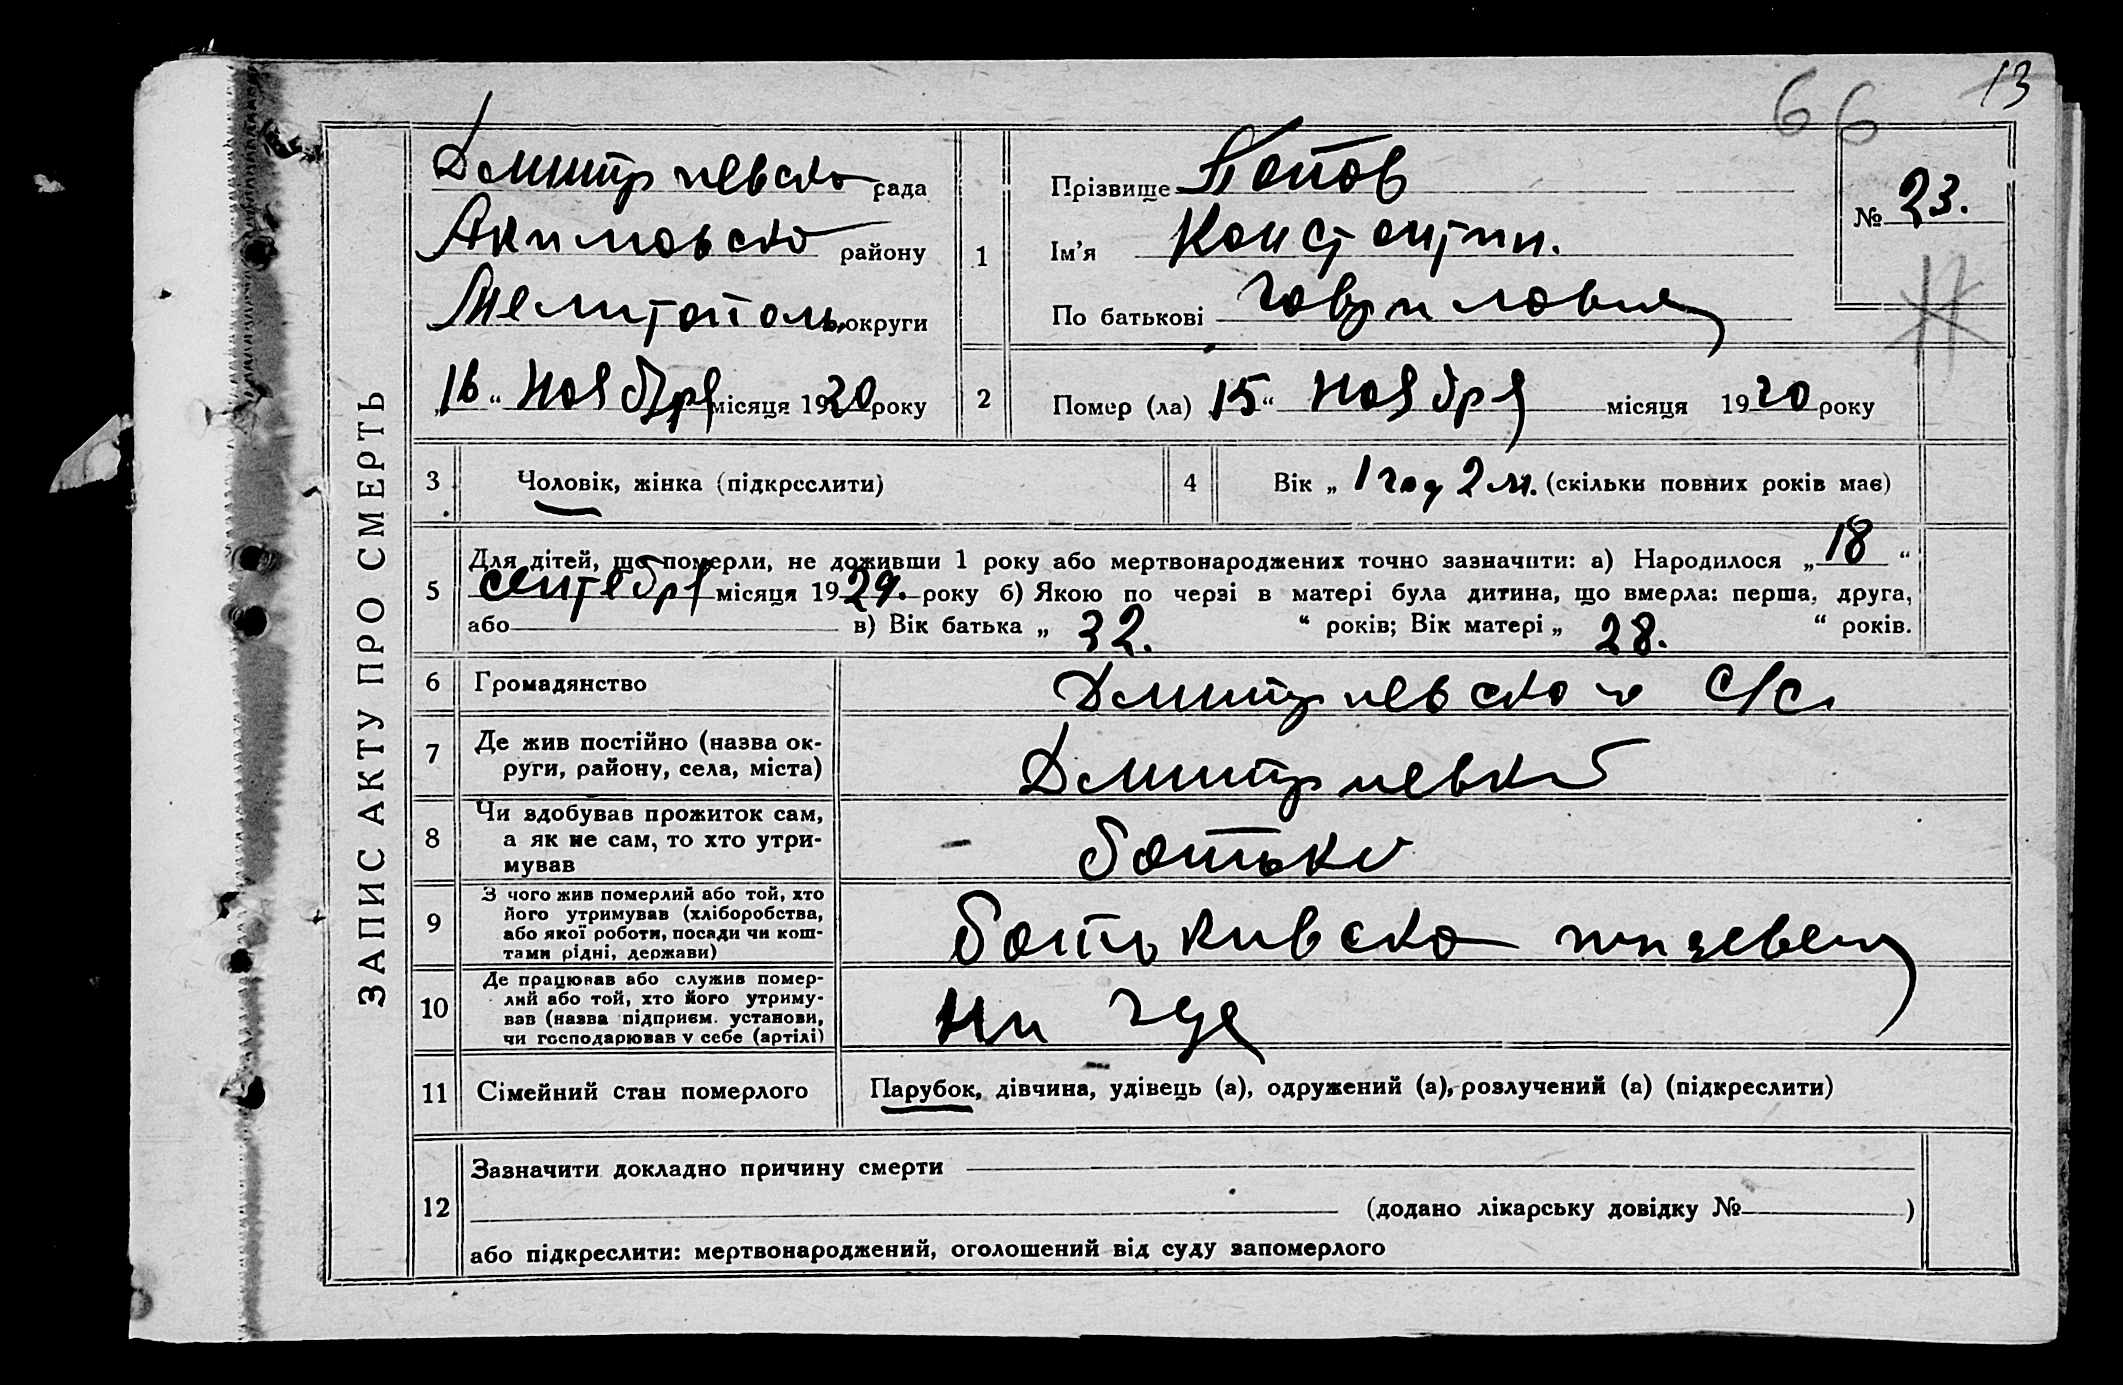 66 13
ЗАПИС АКТУ ПРО СМЕРТЬ
Дмитриевска рада
Акимовско району
Мелитополь. округи
„16“ Ноября місяця 1930 року
1
Прізвище Попов
Ім'я Константин.
По батькові Гаврилович
№ 23.
2
Помер (ла) 15“ Ноября місяця 1930 року
3 Чоловік, жінка (підкреслити)
4 Вік „ 1 год 2 м. (скільки повних років має)
5
Для дітей, що померли, не доживши 1 року або мертвонароджених точно зазначити: а) Народилося „ 18 “
сентября місяця 1929. року б) Якою по черзі в матері була дитина, що вмерла: перша, друга,
або в) Вік батька „ 32. “ років; Вік матері „ 28. “ років.
6 Громадянство Дмитриевской с/с.
7 Де жив постійно (назва ок-
руги, району, села, міста) Дмитриевка
8 Чи здобував прожиток сам,
а як не сам, то хто утри-
мував - батько
9 З чого жив померлий або той, хто
його утримував (хліборобства,
або якої роботи, посади чи кош-
тами рідні, держави) батьковско
10 Де працював або служив помер-
лий або той, хто його утриму-
вав (назва підприєм. установи,
чи господарював у себе (артілі) Ни где
11 Сімейний стан померлого Парубок, дівчина, удівець (а), одружений (а), розлучений (а) (підкреслити)
12
Зазначити докладно причину смерти
(додано лікарську довідку № )
або підкреслити: мертвонароджений, оголошений від суду запомерлого